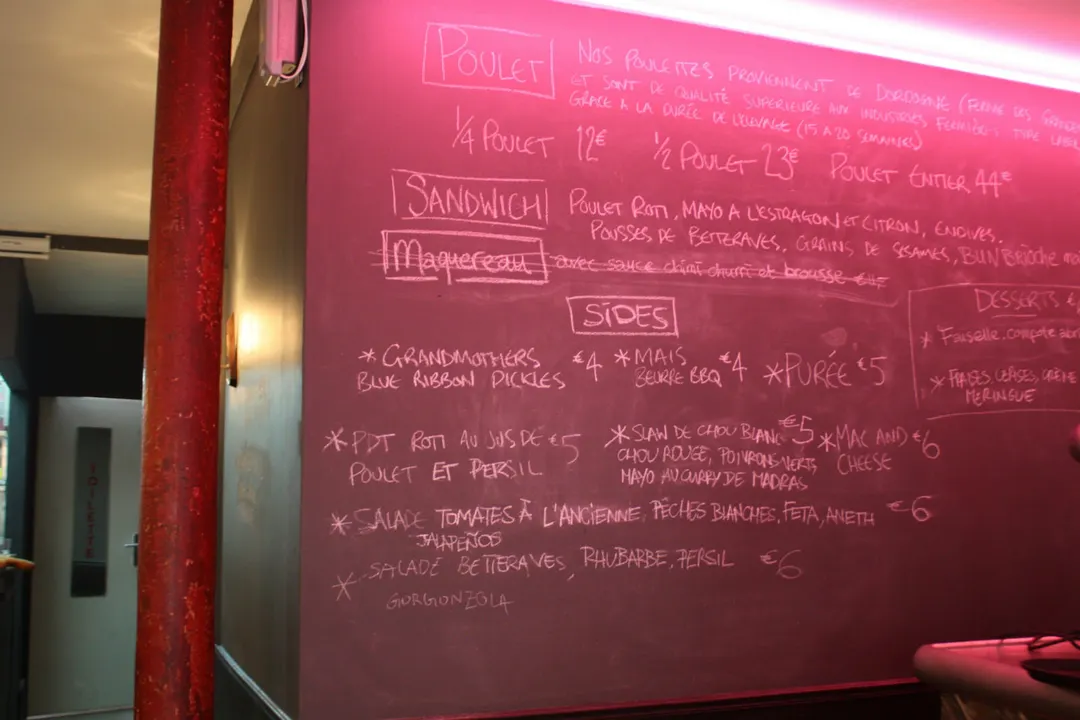 POULET
NOS POULETTES PROVIENNENT DE DORDOGNE (FERME DES
ET SONT DE QUALITÉ SUPERIEURE AUX INDUSTRIES FERMIÈRES TYPE LABEL
GRACE A LA DURÉE DE L'ELEVAGE (15 A 20 SEMAINES)
1/4 POULET 12€ 1/2 POULET 23€ POULET ENTIER 44€
SANDWICH
POULET ROTI, MAYO A L'ESTRAGON ET CITRON, ENDIVES,
POUSSES DE BETTERAVES, GRAINS DE SESAMES, BUN BRIOCHE
Maquereau avec sauce chimi churri et brousse
SIDES
* GRANDMOTHERS €4
BLUE RIBBON PICKLES
* MAIS €4
BEURRE BBQ
* PURÉE €5
DESSERTS €
* Faisselle, compote
* FRAISES, CERISES, CRÈME
MERINGUE
* PDT ROTI AU JUS DE €5
POULET ET PERSIL
* SLAW DE CHOU BLANC €5
CHOU ROUGE, POIVRONS VERTS,
MAYO AU CURRY DE MADRAS
* MAC AND €6
CHEESE
* SALADE TOMATES À L'ANCIENNE, PÊCHES BLANCHES, FETA, ANETH €6
JALAPEÑOS
* SALADE BETTERAVES, RHUBARBE, PERSIL €6
GORGIONZOLA
TOILETTE